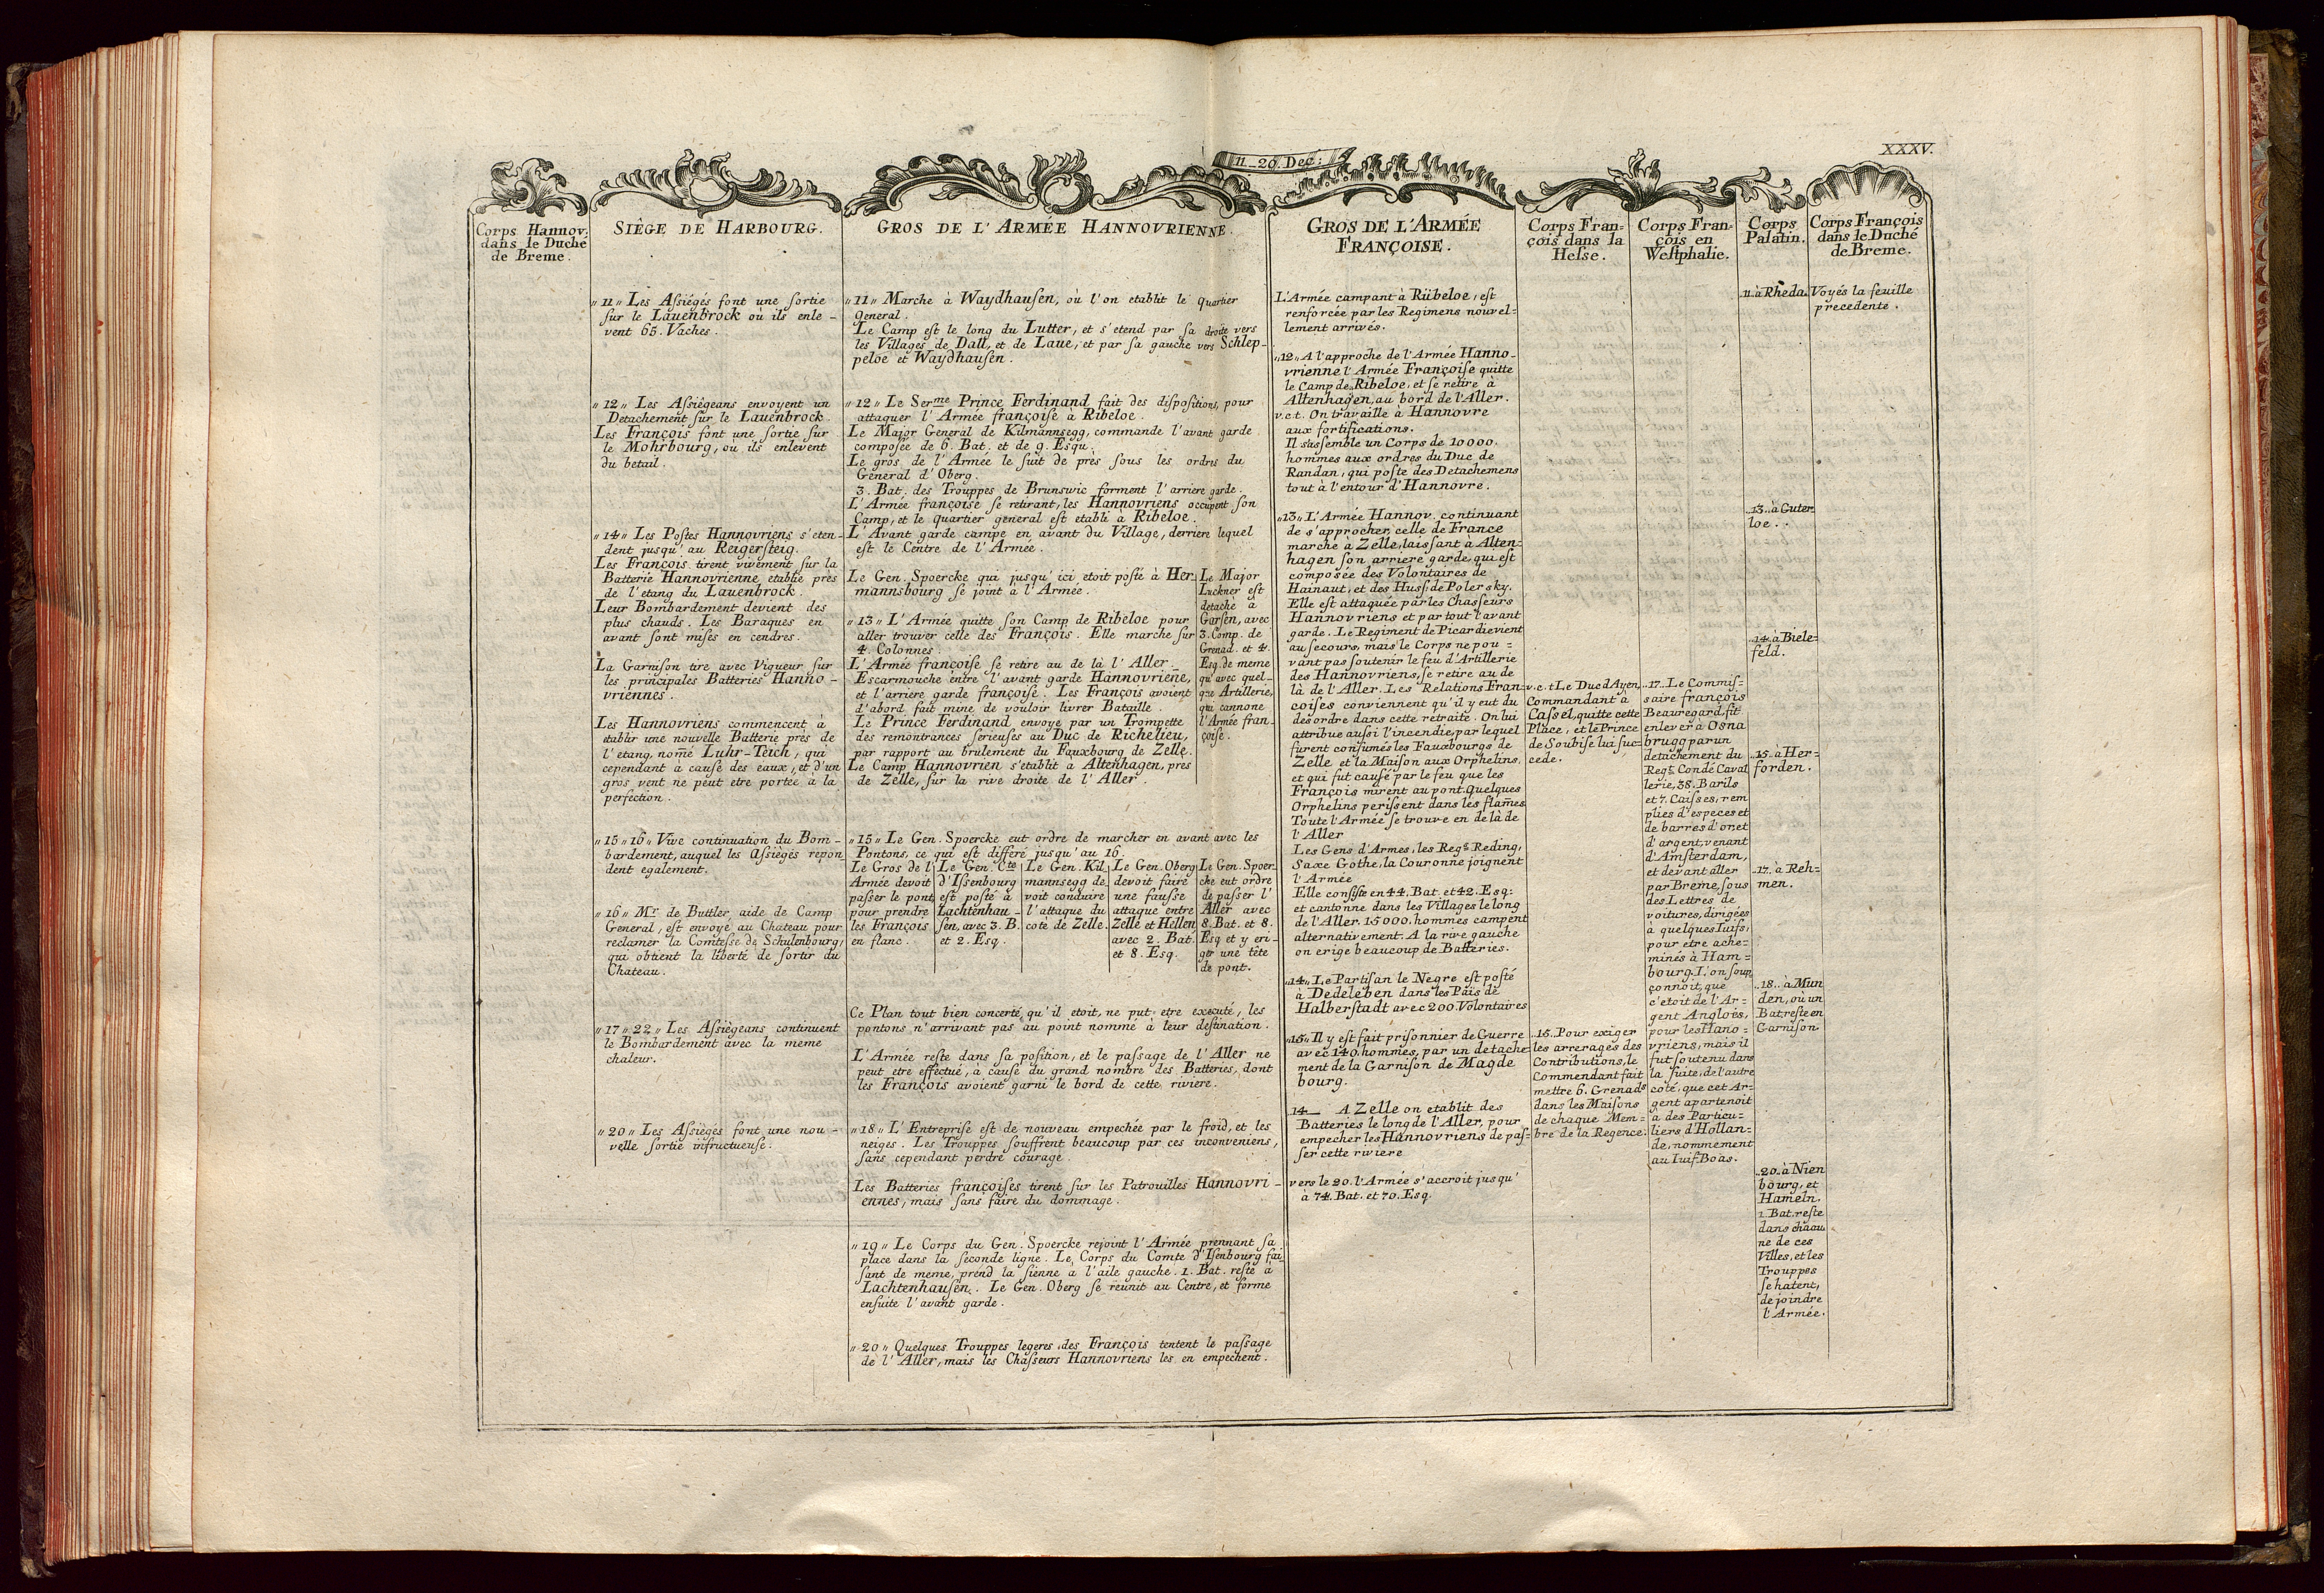 XXXV.
11_20. Dec:
Corps Hannov.
dans le Duché
de Breme.
SIÈGE DE HARBOURG.
„11„ Les Aſsiégés font une ſortie
ſur le Lauenbrock où ils enle-
vent 65. Vaches.
„12„ Les Aſsiègeans envoyent un
Detachement ſur le Lauenbrock.
Les François font une ſortie ſur
le Mohrbourg, où ils enlevent
du betail.
„14„ Les Poſtes Hannovriens s'eten-
dent jusqu' au Reigerſteig.
Les François tirent vivement ſur la
Batterie Hannovrienne etablie près
de l'etang du Lauenbrock.
Leur Bombardement devient des
plus chauds. Les Baraques en
avant ſont miſes en cendres.
La Garniſon tire avec Vigueur ſur
les principales Batteries Hanno-
vriennes.
Les Hannovriens commencent à
etablir une nouvelle Batterie près de
l'etang, nom̄é Luhr-Teich, qui
cependant à cauſe des eaux, et d'un
gros vent ne peut etre portée à la
perfection.
„15„16„ Vive continuation du Bom-
bardement, auquel les Aſsiégés repon
dent egalement.
„16„ Mr. de Buttler, aide de Camp
General, eſt envoyé au Chateau pour
reclamer la Comteſse de Schulenbourg,
qui obtient la liberté de ſortir du
Chateau.
„17„22„ Les Aſsiégeans continuent
le Bombardement avec la meme
chaleur.
„20„ Les Aſsiégés font une nou-
velle ſortie infructueuſe.
GROS DE L'ARMÉE HANNOVRIENNE.
„11„ Marche à Waydhauſen, où l'on etablit le quartier
General.
Le Camp eſt le long du Lutter, et s'etend par ſa droite vers
les Villages de Dall, et de Laue, et par ſa gauche vers Schlep-
peloe et Waydhauſen.
„12„ Le Serme Prince Ferdinand fait des diſpoſitions, pour
attaquer l'Armée françoiſe à Ribeloe.
Le Major General de Kilmannsegg, commande l'avant garde
compoſée de 6. Bat. et de 9. Esqu.
Le gros de l'Armée le ſuit de près ſous les ordres du
General d'Oberg.
3. Bat. des Trouppes de Brunswic forment l'arriere garde.
L'Armée françoiſe ſe retirant, les Hannovriens occupent ſon
Camp, et le quartier general eſt etabli à Ribeloe.
L'Avant garde campe en avant du Village, derriere lequel
eſt le Centre de l'Armée.
Le Gen. Spoercke qui jusqu' ici etoit poſté à Her-
mannsbourg ſe joint à l'Armée.
„13„ L'Armée quitte ſon Camp de Ribeloe pour
aller trouver celle des François. Elle marche ſur
4. Colonnes.
L'Armée françoiſe ſe retire au de là l'Aller_
Escarmouche entre l'avant garde Hannovrieñe,
et l'arriere garde françoiſe. Les François avoient
d'abord fait mine de vouloir livrer Bataille.
Le Prince Ferdinand envoye par un Trompette
des remontrances ſerieuſes au Duc de Richelieu,
par rapport au brulement du Fauxbourg de Zelle.
Le Camp Hannovrien s'etablit à Altenhagen, près
de Zelle, ſur la rive droite de l'Aller.
Le Major
Luckner eſt
detaché à
Garſen, avec
3. Comp. de
Grenad. et 4.
Esq. de meme
qu'avec quel-
que Artillerie,
qui cannone
l'Armée fran-
çoiſe.
„15„ Le Gen. Spoercke eut ordre de marcher en avant avec les
Pontons, ce qui eſt differé jusqu'au 16.
Le Gros de l'
Armée devoit
paſser le pont
pour prendre
les François
en flanc.
Le Gen. Cte
d'Iſsenbourg
eſt poſté à
Lachtenhau-
ſen, avec 3. B.
et 2. Esq.
Le Gen. Kil-
mannsegg de
voit conduire
l'attaque du
coté de Zelle.
Le Gen. Oberg
devoit faire
une fauſse
attaque entre
Zelle et Hellen
avec 2. Bat.
et 8. Esq.
Le Gen. Spoer-
cke eut ordre
de paſser l'
Aller avec
8. Bat. et 8.
Esq et y eri-
ger une tête
de pont.
Ce Plan tout bien concerté qu'il etoit, ne put etre executé, les
pontons n'arrivant pas au point nommé à leur deſtination.
L'Armée reſte dans ſa poſition, et le paſsage de l'Aller ne
peut etre effectué, à cauſe du grand nombre des Batteries, dont
les François avoient garni le bord de cette riviere.
„18„ L'Entrepriſe eſt de nouveau empechée par le froid, et les
neiges. Les Trouppes ſouffrent beaucoup par ces inconveniens,
ſans cependant perdre courage.
Les Batteries françoiſes tirent ſur les Patrouilles Hannovri-
ennes, mais ſans faire du dommage.
„19„ Le Corps du Gen. Spoercke rejoint l'Armée prennant ſa
place dans la ſeconde ligne. Le Corps du Comte d'Iſenbourg fai-
ſant de meme, prend la ſienne à l'aile gauche. 1. Bat. reſte à
Lachtenhauſen. Le Gen. Oberg ſe reünit au Centre, et forme
enſuite l'avant garde.
„20„ Quelques Trouppes legeres des François tentent le paſsage
de l'Aller, mais les Chaſseurs Hannovriens les en empechent.
GROS DE L'ARMÉE
FRANÇOISE.
L'Armée campant à Rübeloe, eſt
renforcée par les Regimens nouvel=
lement arrivés.
„12„ A l'approche de l'Armée Hanno-
vrienne l'Armée Françoiſe quitte
le Camp de Ribeloe, et ſe retire à
Altenhagen, au bord de l'Aller.
v.e.t. On travaille à Hannovre
aux fortifications.
Il s'aſsemble un Corps de 10000.
hommes aux ordres du Duc de
Randan, qui poſte des Detachemens
tout à l'entour d'Hannovre.
„13„ L'Armée Hannov. continuant
de s'approcher, celle de France
marche à Zelle, laiſsant à Alten=
hagen ſon arriere garde, qui eſt
compoſée des Volontaires de
Hainaut, et des Huſs. de Polersky.
Elle eſt attaquée par les Chaſseurs
Hannovriens et par tout l'avant
garde. Le Regiment de Picardie vient
au ſecours, mais le Corps ne pou-
vant pas ſoutenir le feu d'Artillerie
des Hannovriens, ſe retire au de
là de l'Aller. Les Relations Fran-
coiſes conviennent qu'il y eut du
desordre dans cette retraite. On lui
attribue auſsi l'incendie, par lequel
furent conſumés les Fauxbourgs de
Zelle et la Maiſon aux Orphelins,
et qui fut cauſé par le feu que les
François mirent au pont. Quelques
Orphelins periſsent dans les flam̄es
Toute l'Armée ſe trouve en de là de
l'Aller
Les Gens d'Armes, les Regts Reding,
Saxe Gothe, la Couronne joignent
l'Armée
Elle conſiſte en 44. Bat. et 42. Esq:
et cantonne dans les Villages le long
de l'Aller. 15000. hommes campent
alternativement. A la rive gauche
on erige beaucoup de Batteries.
„14„ Le Partiſan le Negre eſt poſté
à Dedeleben dans les Païs de
Halberſtadt avec 200. Volontaires
„15„ Il y eſt fait priſonnier de Guerre
avec 140. hommes, par un detache-
ment de la Garniſon de Magde
bourg.
14_ A Zelle on etablit des
Batteries le long de l'Aller, pour
empecher les Hannovriens de paſ=
ſer cette riviere
vers le 20. l'Armée s'accroit jusqu'
à 74. Bat. et 70. Esq.
Corps Fran=
çois dans la
Heſse.
v.e.t Le Duc d'Ayen,
Commandant à
Caſsel, quitte cette
Place, et le Prince
de Soubiſe lui ſuc-
cede.
„16„ Pour exiger
les arrerages des
Contributions, le
Commendant fait
mettre 6. Grenads
dans les Maiſons
de chaque Mem=
bre de la Regence.
Corps Fran=
çois en
Weſtphalie.
„17„ Le Commiſ=
ſaire françois
Beauregard, fit
enlever à Osna
brugg par un
detachement du
Regt. Condé Caval
lerie, 38. Barils
et 7. Caiſses, rem
plies d'especes et
de barres d'or et
d'argent, venant
d'Amſterdam,
et devant aller
par Breme, ſous
des Lettres de
voitures, dirigées
à quelques Iuifs,
pour etre ache=
minés à Ham=
bourg. L'on ſoup
çonnoit, que
c'etoit de l'Ar=
gent Anglois,
pour les Hano=
vriens, mais il
fut ſoutenu dans
la ſuite, de l'autre
coté, que cet Ar=
gent apartenoit
à des Particu=
liers d'Hollan=
de, nommement
au Iuif Boas.
Corps
Palatin.
„11„ à Rheda.
„13„ à Guter
loe.
„14„ à Biele=
feld.
„15„ à Her=
forden.
„17„ à Reh=
men.
„18„ à Mun
den, où un
Bat. reſte en
Garniſon.
„20„ à Nien
bourg, et
Hameln.
1 Bat. reſte
dans chacu
ne de ces
Villes, et les
Trouppes
ſe hatent,
de joindre
l'Armée.
Corps François
dans le Duché
de Breme.
Voyés la feuille
precedente.